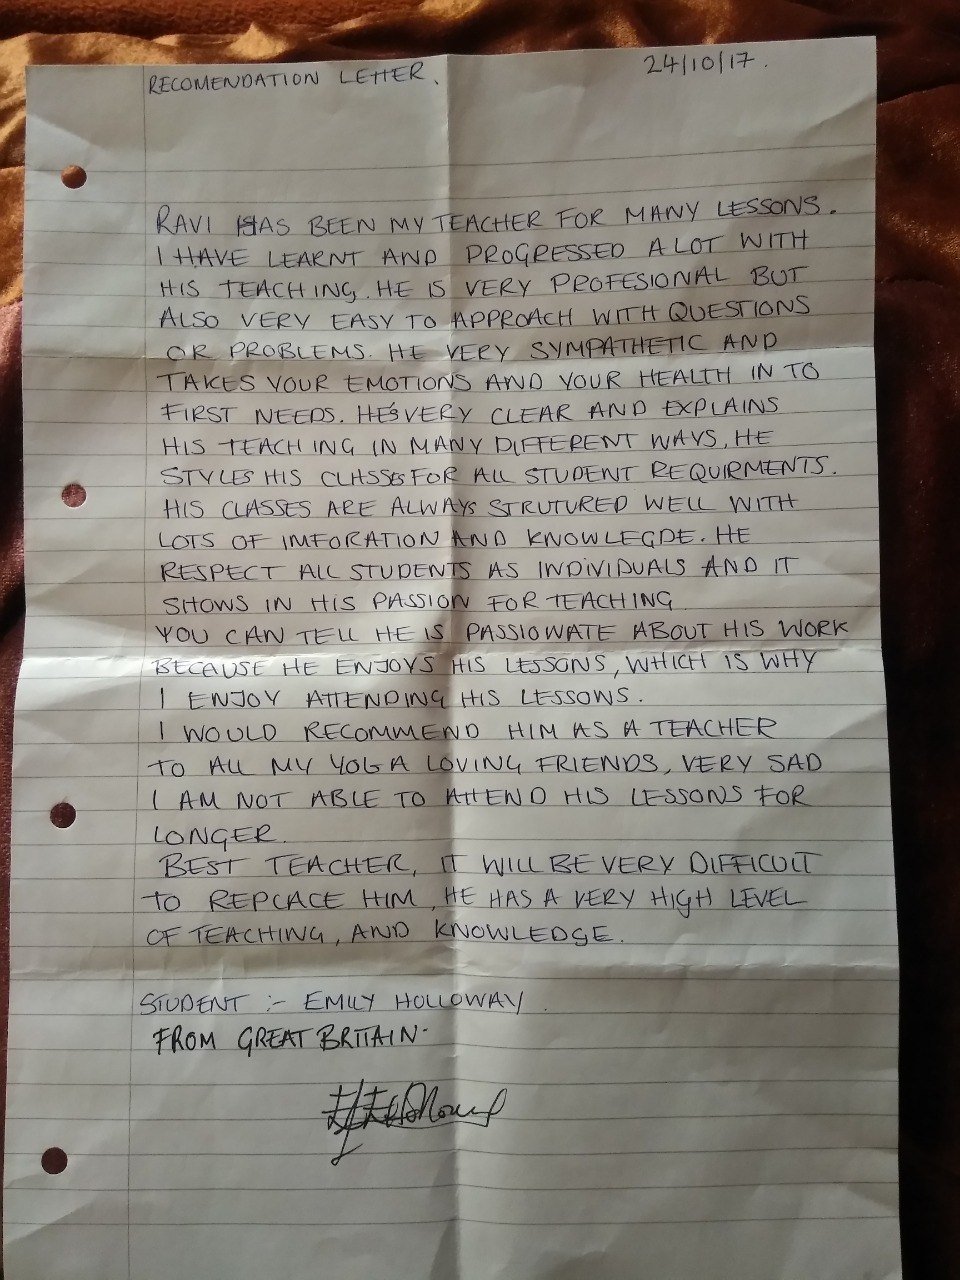 RECOMENDATION LETTER.
24/10/17.
RAVI HAS BEEN MY TEACHER FOR MANY LESSONS.
I HAVE LEARNT AND PROGRESSED A LOT WITH
HIS TEACHING. HE IS VERY PROFESIONAL BUT
ALSO VERY EASY TO APPROACH WITH QUESTIONS
OR PROBLEMS. HE VERY SYMPATHETIC AND
TAKES YOUR EMOTIONS AND YOUR HEALTH IN TO
FIRST NEEDS. HE'S VERY CLEAR AND EXPLAINS
HIS TEACHING IN MANY DIFFERENT WAYS. HE
STYLES HIS CLASSES FOR ALL STUDENT REQUIRMENTS.
HIS CLASSES ARE ALWAYS STRUTURED WELL WITH
LOTS OF IMFORATION AND KNOWLEGDE. HE
RESPECT ALL STUDENTS AS INDIVIDUALS AND IT
SHOWS IN HIS PASSION FOR TEACHING
YOU CAN TELL HE IS PASSIONATE ABOUT HIS WORK
BECAUSE HE ENJOYS HIS LESSONS, WHICH IS WHY
I ENJOY ATTENDING HIS LESSONS.
I WOULD RECOMMEND HIM AS A TEACHER
TO ALL MY YOGA LOVING FRIENDS, VERY SAD
I AM NOT ABLE TO ATTEND HIS LESSONS FOR
LONGER.
BEST TEACHER, IT WILL BE VERY DIFFICULT
TO REPLACE HIM, HE HAS A VERY HIGH LEVEL
OF TEACHING, AND KNOWLEDGE.
STUDENT :- EMILY HOLLOWAY.
FROM GREAT BRITAIN-